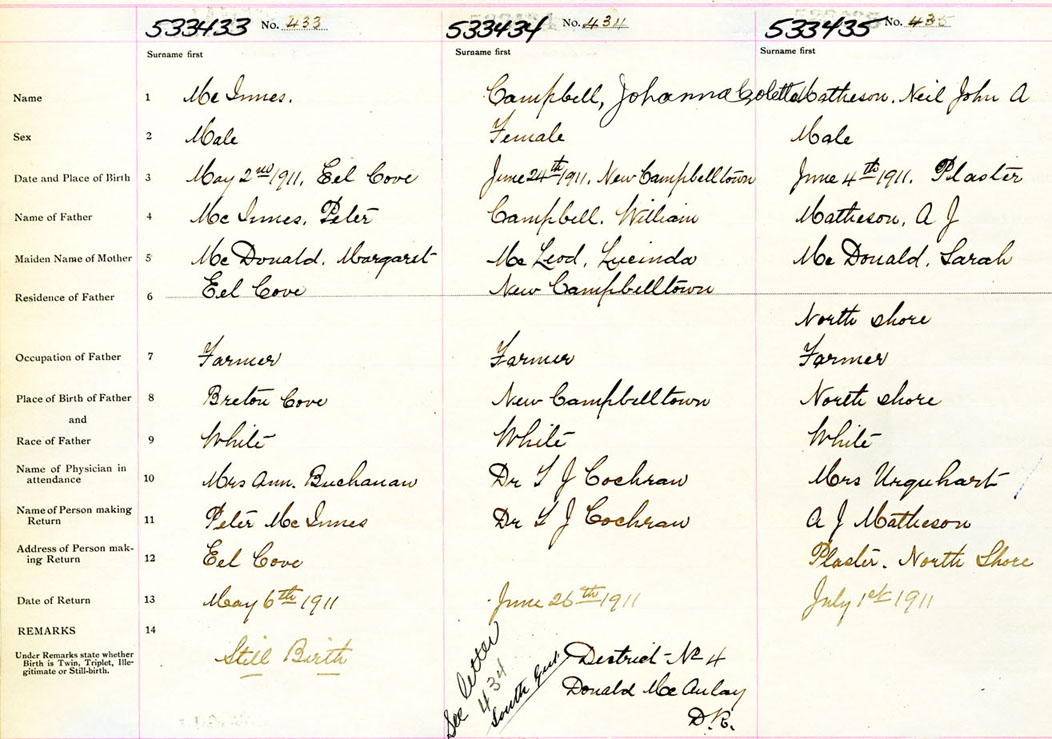 533433 No. 433 533434 No. 434 533435 No. 435
Surname first Surname first Surname first
Name 1 Mc Innes. Campbell, Johanna Colette Matheson. Neil John A
Sex 2 Male Female Male
Date and Place of Birth 3 May 2nd 1911, Eel Cove June 24th 1911. New Campbelltown June 4th 1911. Plaster
Name of Father 4 Mc Innes, Peter Campbell. William Matheson, A J
Maiden Name of Mother 5 Mc Donald, Margaret Mc Leod, Lucinda Mc Donald. Sarah
Residence of Father 6 Eel Cove New Campbelltown
North shore
Occupation of Father 7 Farmer Farmer Farmer
Place of Birth of Father 8 Breton Cove New Campbelltown North shore
and
Race of Father 9 White White White
Name of Physician in
attendance 10 Mrs Ann. Buchanan Dr J Cochran Mrs Urquhart
Name of Person making
Return 11 Peter Mc Innes Dr J Cochran A J Matheson
Address of Person mak-
ing Return 12 Eel Cove Plaster. North Shore
Date of Return 13 May 6th 1911 June 26th 1911 July 1st 1911
REMARKS 14
Under Remarks state whether
Birth is Twin, Triplet, Ille-
gitimate or Still-birth.
Still Birth
See letter
434
South
District No 4
Donald Mc Aulay
D.R.